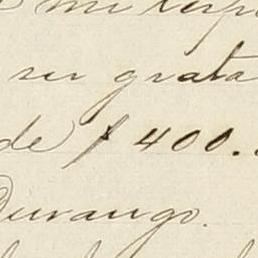 e mi resp
su grata
de $400.
Durango.